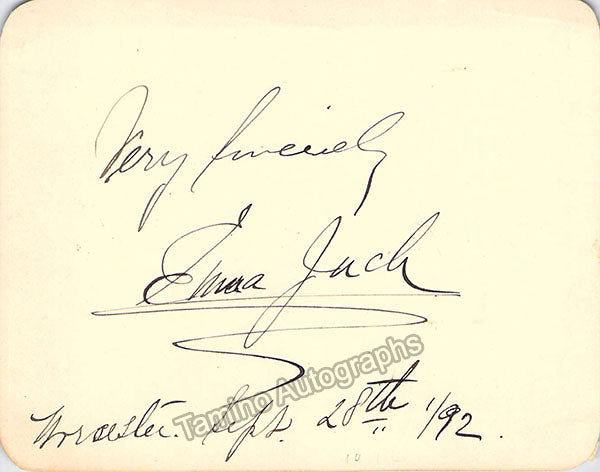 Very Sincerely
Emma Juch
Tamino Autographs
Worcester. Sept. 28th 1/92.